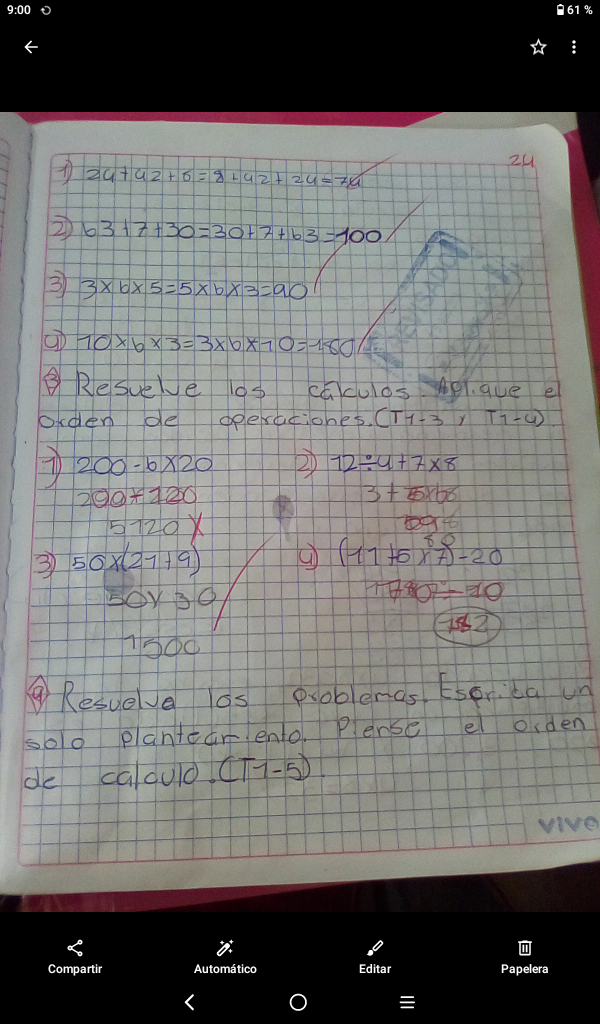 9:00 61 %
24
1) 24+42+6=8+42+24=74
2) 63+7+30=30+7+63=100
3) 3x6x5=5x6x3=90
4) 10x6x3=3x6x10=180
REVISADO
8 Resuelve los cálculos. Aplique el
orden de operaciones.(T1-3 y T1-4)
1) 200-6x20 2) 12÷4+7x8
200+120
5120 X
3) 50x(21+9) 4) (11+5x7)-20
50x30
1500
9 Resuelva los problemas. Escriba un
solo planteamiento. Piense el orden
de calculo.(T1-5)
vivo
Compartir Automático Editar Papelera